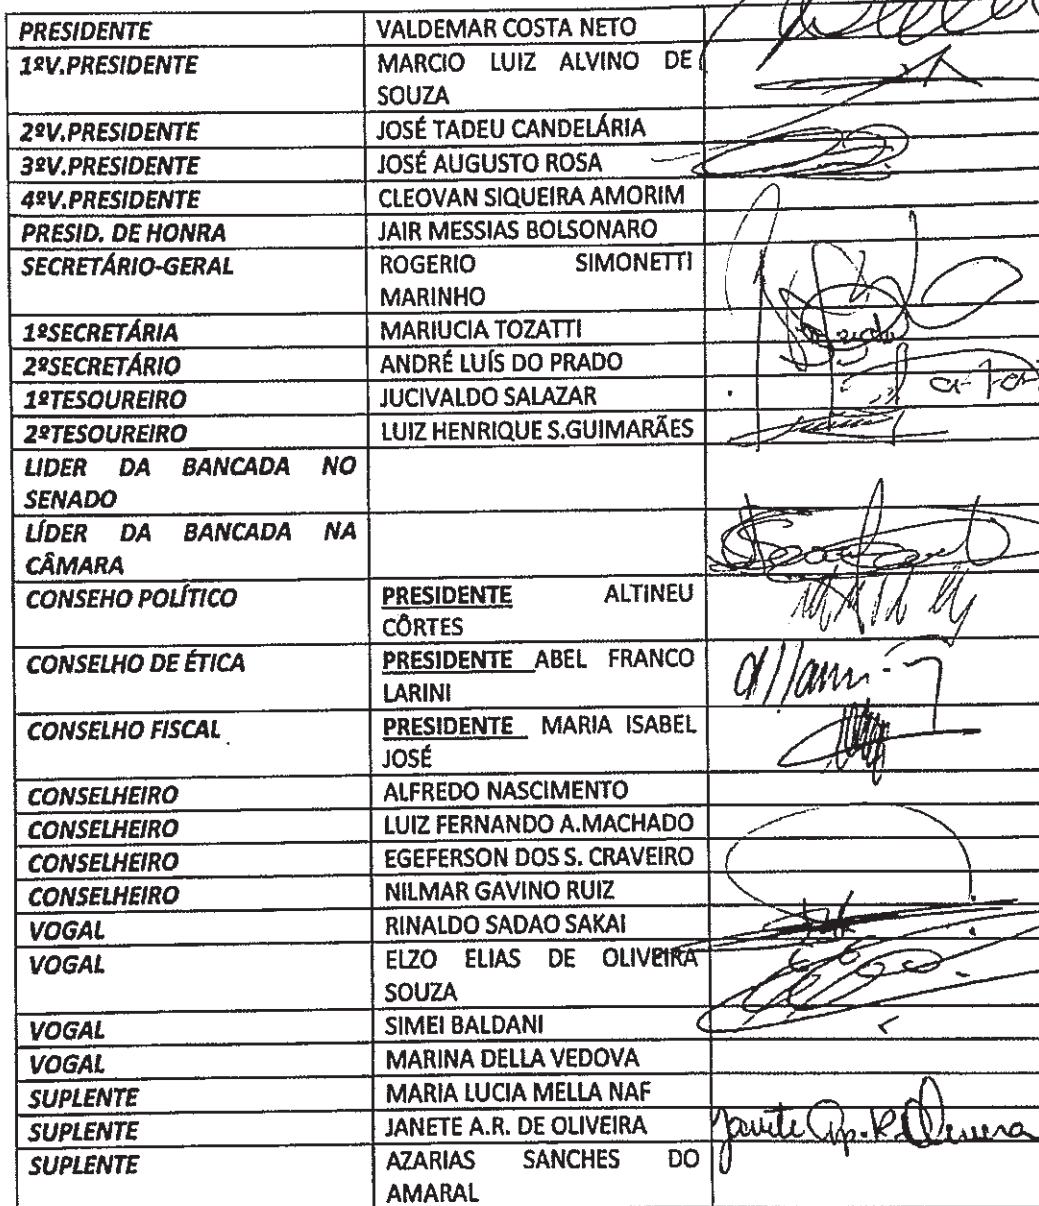 PRESIDENTE VALDEMAR COSTA NETO
1ºV.PRESIDENTE MARCIO LUIZ ALVINO DE
SOUZA
2ºV.PRESIDENTE JOSÉ TADEU CANDELÁRIA
3ºV.PRESIDENTE JOSÉ AUGUSTO ROSA
4ºV.PRESIDENTE CLEOVAN SIQUEIRA AMORIM
PRESID. DE HONRA JAIR MESSIAS BOLSONARO
SECRETÁRIO-GERAL ROGERIO SIMONETTI
MARINHO
1ºSECRETÁRIA MARIUCIA TOZATTI
2ºSECRETÁRIO ANDRÉ LUÍS DO PRADO
1ºTESOUREIRO JUCIVALDO SALAZAR
2ºTESOUREIRO LUIZ HENRIQUE S.GUIMARÃES
LIDER DA BANCADA NO
SENADO
LÍDER DA BANCADA NA
CÂMARA
CONSEHO POLÍTICO PRESIDENTE ALTINEU
CÔRTES
CONSELHO DE ÉTICA PRESIDENTE ABEL FRANCO
LARINI
CONSELHO FISCAL PRESIDENTE MARIA ISABEL
JOSÉ
CONSELHEIRO ALFREDO NASCIMENTO
CONSELHEIRO LUIZ FERNANDO A.MACHADO
CONSELHEIRO EGEFERSON DOS S. CRAVEIRO
CONSELHEIRO NILMAR GAVINO RUIZ
VOGAL RINALDO SADAO SAKAI
VOGAL ELZO ELIAS DE OLIVEIRA
SOUZA
VOGAL SIMEI BALDANI
VOGAL MARINA DELLA VEDOVA
SUPLENTE MARIA LUCIA MELLA NAF
SUPLENTE JANETE A.R. DE OLIVEIRA Janete Ap. R. Oliveira
SUPLENTE AZARIAS SANCHES DO
AMARAL